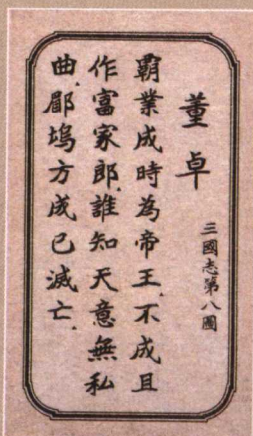 三國志第八圖
董卓
霸業成時為帝王.不成且
作富家郎.誰知天意無私
曲.郿塢方成已滅亡.